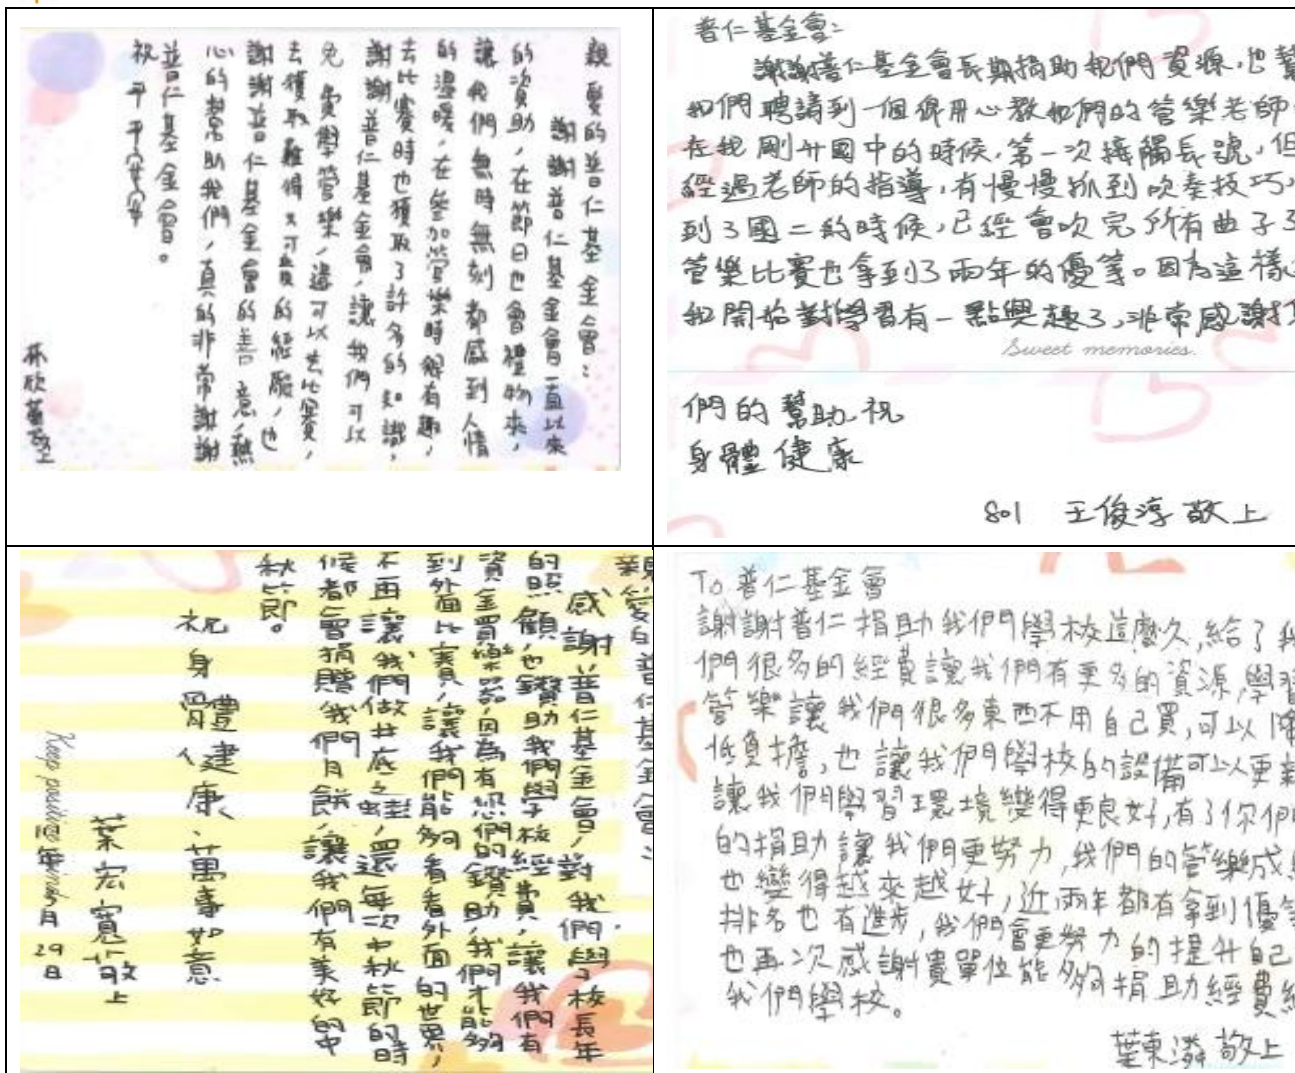 親愛的普仁基金會：
謝謝普仁基金會一直以來
的資助，在節日也會禮物來，
讓我們無時無刻都感到人情
的溫暖，在參加管樂時很有趣，
去比賽時也獲取了許多的知識，
謝謝普仁基金會，讓我們可以
免費學管樂，還可以去比賽，
去獲取難得可貴的經驗，也
謝謝普仁基金會的善意、熱
心的幫助我們，真的非常謝謝
普仁基金會。
祝平平安安
普仁基金會：
謝謝普仁基金會長期捐助我們資源，也幫
我們聘請到一個很用心教我們的管樂老師
在我剛升國中的時候，第一次接觸長號，但
經過老師的指導，有慢慢抓到吹奏技巧，
到了國二的時候，已經會吹完所有曲子了
管樂比賽也拿到了兩年的優等。因為這樣
我開始對學習有一點興趣了，非常感謝
Sweet memories.
們的幫助祝
身體健康
801 王俊淳敬上
親愛的普仁基金會：
感謝普仁基金會，對我們學校長年
的照顧，也贊助我們學校經費，讓我們有
資金買樂器，因為有您們的贊助，我們才能夠
到外面比賽，讓我們能夠看看外面的世界，
不再讓我們做井底之蛙，還每次中秋節的時
候都會捐贈我們月餅，讓我們有美好的中
秋節。
祝
身體健康、萬事如意
葉宏寬敬上
月29日
Keep positive
To 普仁基金會
謝謝普仁捐助我們學校這麼久，給了我
們很多的經費讓我們有更多的資源，學習
管樂讓我們很多東西不用自己買，可以降
低負擔，也讓我們學校的設備可以更新
讓我們學習環境變得更良好，有了你們
的捐助讓我們更努力，我們的管樂成績
也變得越來越好，近兩年都有拿到優等
排名也有進步，我們會更努力的提升自己
也再次感謝貴單位能夠捐助經費給
我們學校。
葉東潾敬上